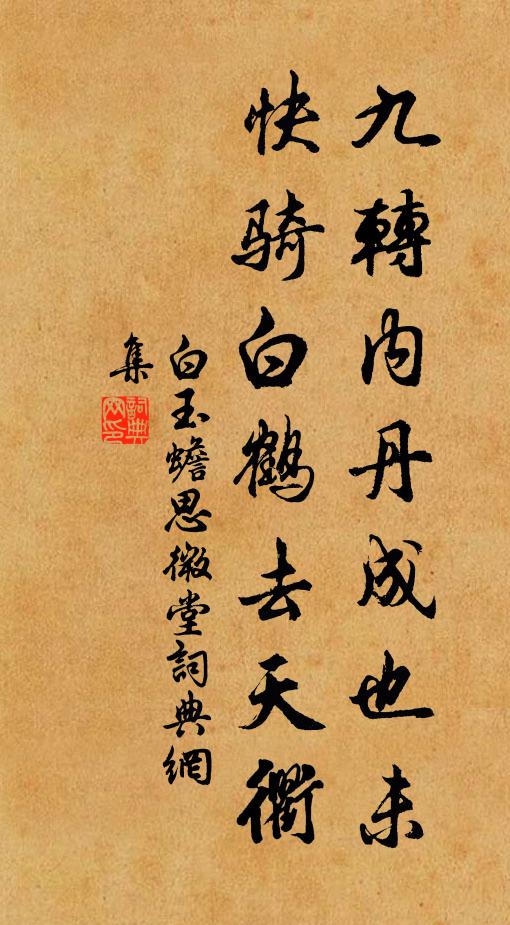 九轉内丹成也未
快骑白鶴去天衢
白玉蟾思微堂詞典網
集
詞典網印